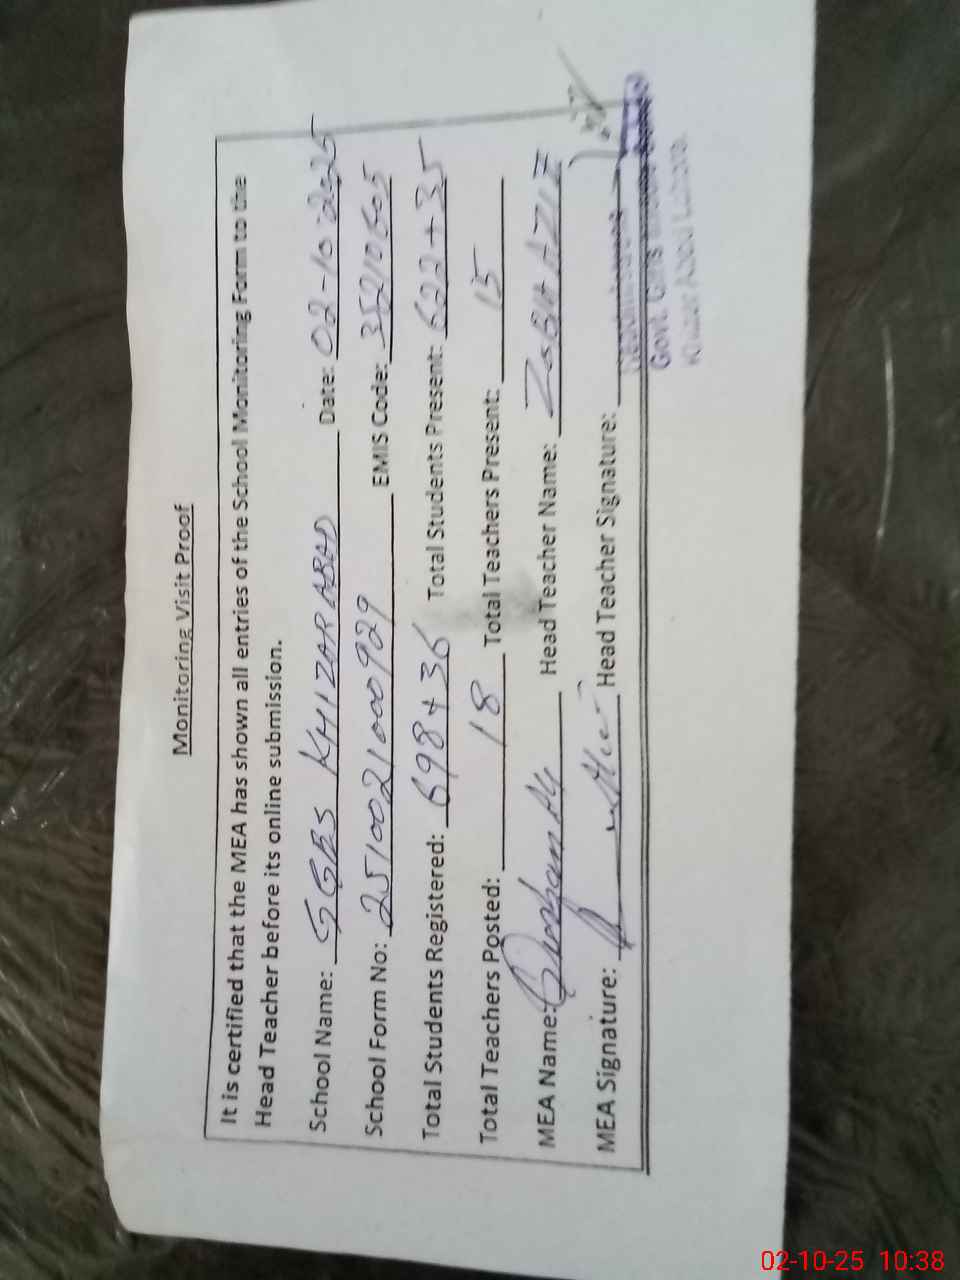 Monitoring Visit Proof
It is certified that the MEA has shown all entries of the School Monitoring Form to the
Head Teacher before its online submission.
School Name: GGES KHIZAR ABAD Date: 02-10-2025
School Form No: 2510021000929 EMIS Code: 35210605
Total Students Registered: 698+36 Total Students Present: 622+35
Total Teachers Posted: 18 Total Teachers Present: 15
MEA Name: Head Teacher Name: ZOBIA AZIZ
MEA Signature: Head Teacher Signature:
Headmistress
Govt Girls
Khizar Abad Lahore.
02-10-25 10:38